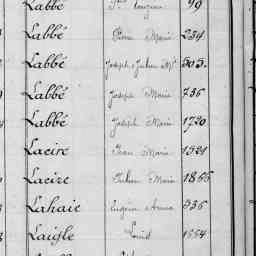 Labbé 99
Labbé Pierre Marie 234
Labbé Joseph Julien Mie 503
Labbé Joseph Marie 736
Labbé Joseph Marie 1720
Lacire Jean Marie 1521
Lacire Julien Marie 1865
Lahaie Eugène Anna 336
Laigle Louis 1554